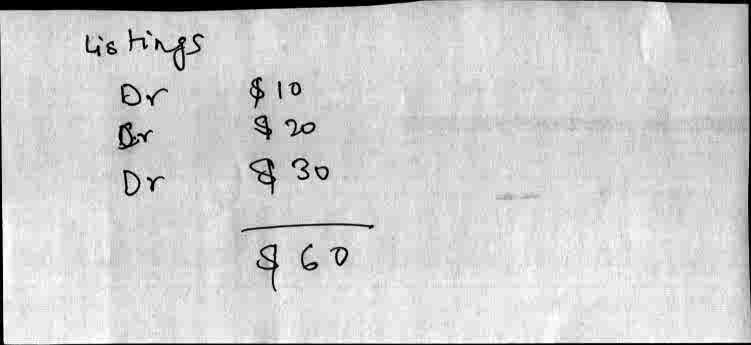 Listings
Dr $10
Dr $20
Dr $30
$60